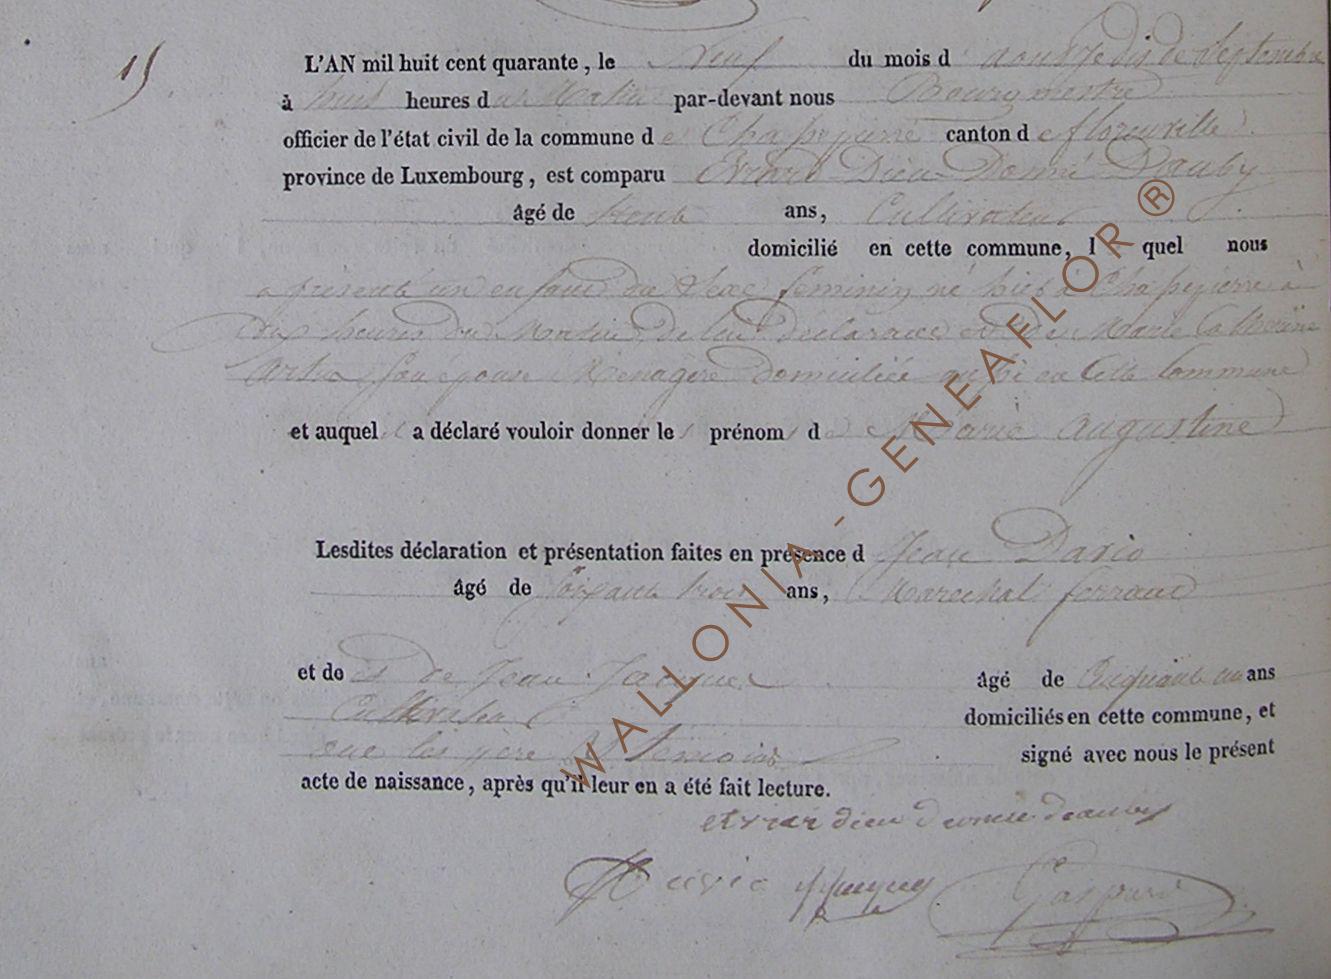 15
L'AN mil huit cent quarante, le neuf du mois d
à huit heures du Matin par-devant nous Bourgmestre
officier de l'état civil de la commune de Chapepierre canton de florenville
province de Luxembourg, est comparu Evrard Dieu Donné Dauby
âgé de trente ans, Cultivateur
domicilié en cette commune, lequel nous
a présenté un enfant du Sexe feminin né hier à Chapepierre à
heures du Matin de lui déclarant et de Marie Catherine
son épouse Ménagère domiciliée aussi en Cette Commune
et auquel il a déclaré vouloir donner les prénoms de Marie Augustine
Lesdites déclaration et présentation faites en présence de Jean
âgé de soixante trois ans, Marechal ferrant
et de et de Jean Jacques âgé de Cinquante un ans
Cultivateur domiciliés en cette commune, et
ont les père et témoins signé avec nous le présent
acte de naissance, après qu'il leur en a été fait lecture.
dieu donnée dauby
WALLONIA-GENEAFLOR ®